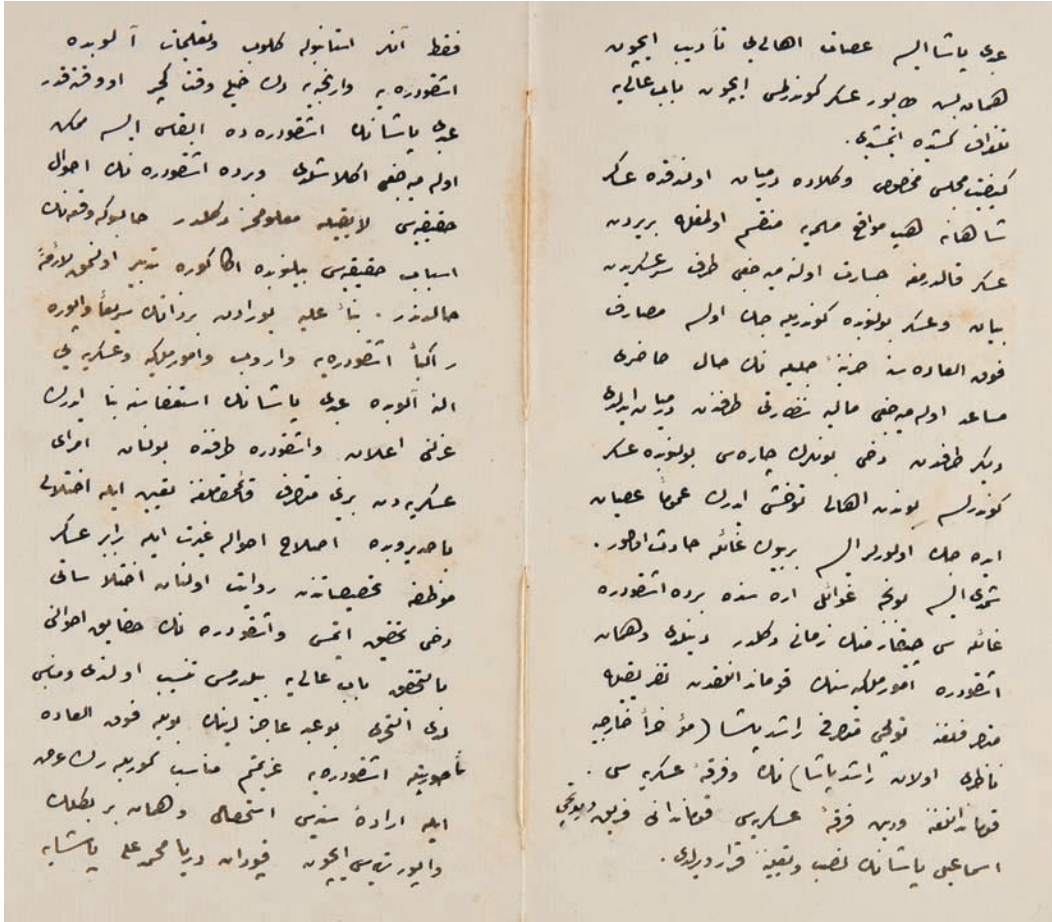 عبدی پاشا ایسه عصات اهالی‌یی تأدیب ایچون
همان بش طابور عسکر کوندرلمسی ایچون باب عالی‌یه
تلغراف کشیده ایتمشیدی.
کیفیت مجلس مخصوص وکلاده درمیان اولندقده عسکر
شاهانه هپ مواقع مهمه‌یه منقسم اولمغله بر یردن
عسکر قالدرمغه جسارت اولنه‌میه‌جغی طرف سرعسکریدن
بیان و عسکر بولنوبده کوندریله‌جك اولسه مصارف
فوق العاده‌سنه خزینهٔ جلیله‌نك حال حاضری
مساعد اوله‌میه‌جغی مالیه نظارتی طرفندن درمیان ایدلدی
دیکر طرفدن دخی بونلرك چاره‌سی بولنوبده عسکر
کوندرلسه بوندن اهالی توحش ایدرك عموماً عصیان
ایده‌جك اولورلر ایسه بر بیوك غائله حادث اولور.
شمدی ایسه بونجه غوائل اره‌سنده برده اشقودره
غائله‌سی چیقارمنك زمانی دکلدر دینلدی و همان
اشقودره امور ملکیه‌سنك قوماندانلقدن تفریقیله
متصرفلغنه تولچی متصرفی راشد پاشا (مؤخراً خارجیه
ناظری اولان راشد پاشا) نك و فرقهٔ عسکریه‌سی
قوماندانلغنه ودین فرقهٔ عسکریه‌سی قوماندانی فریق
اسماعیل پاشانك نصب و تعیینه قرار ویرلدی.
فقط آنلر استانبوله کلوب و تعلیمات آلوبده
اشقودره‌یه وارنجه‌یه دك خیلی وقت کچر او وقته قدر
عبدی پاشانك اشقودره‌ده ابقاسی ایسه ممکن
اوله‌میه‌جغی اکلاشلدی و برده اشقودره‌نك احوال
حقیقیه‌سی لایقیله معلومز دکلدر حالبوکه وقعه‌نك
اسباب حقیقیه‌سی بیلنوبده اکا کوره تدبیر اولنمق لازمهٔ
حالدندر. بناءً علیه بورادن بر ذاتك سریعاً واپوره
راکباً اشقودره‌یه واروب و امور ملکیه و عسکریه‌یی
اله آلوبده عبدی پاشانك استعفاسنه بناءً ایدرك
عزلنی اعلان و اشقودره طرفنده بولنان امرای
عسکریه‌دن برینی متصرف قائمقاملغنه تعیین ایله اختلالی
باصدیروبده اصلاح احواله غیرت ایله برابر عسکر
موظفه تخصیصاتندن روایت اولنان اختلاساتی
دخی تحقیق ایتمسی و اشقودره‌نك حقایق احوالنی
بالتحقیق باب عالی‌یه بیلدرمسی تنسیب اولندی و
لدی التحری بو عبد عاجزلرینك بویله فوق العاده
مأموریتله اشقودره‌یه عزیمتم مناسب کوریله‌رك عرض
ایله ارادهٔ سنیه‌سی استحصال و همان بر
واپور تهیه‌سی ایچون قپودان دریا محمد علی پاشایه